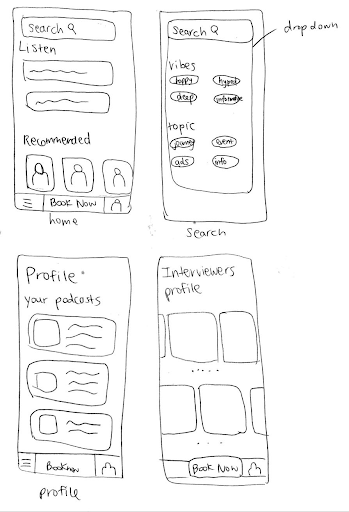 Search
Listen
Recommended
Book Now
home
dropdown
Search
vibes
happy hyped
deep informative
topic
journey event
ads info
Search
Profile
your podcasts
Book now
profile
Interviewers
profile
Book Now